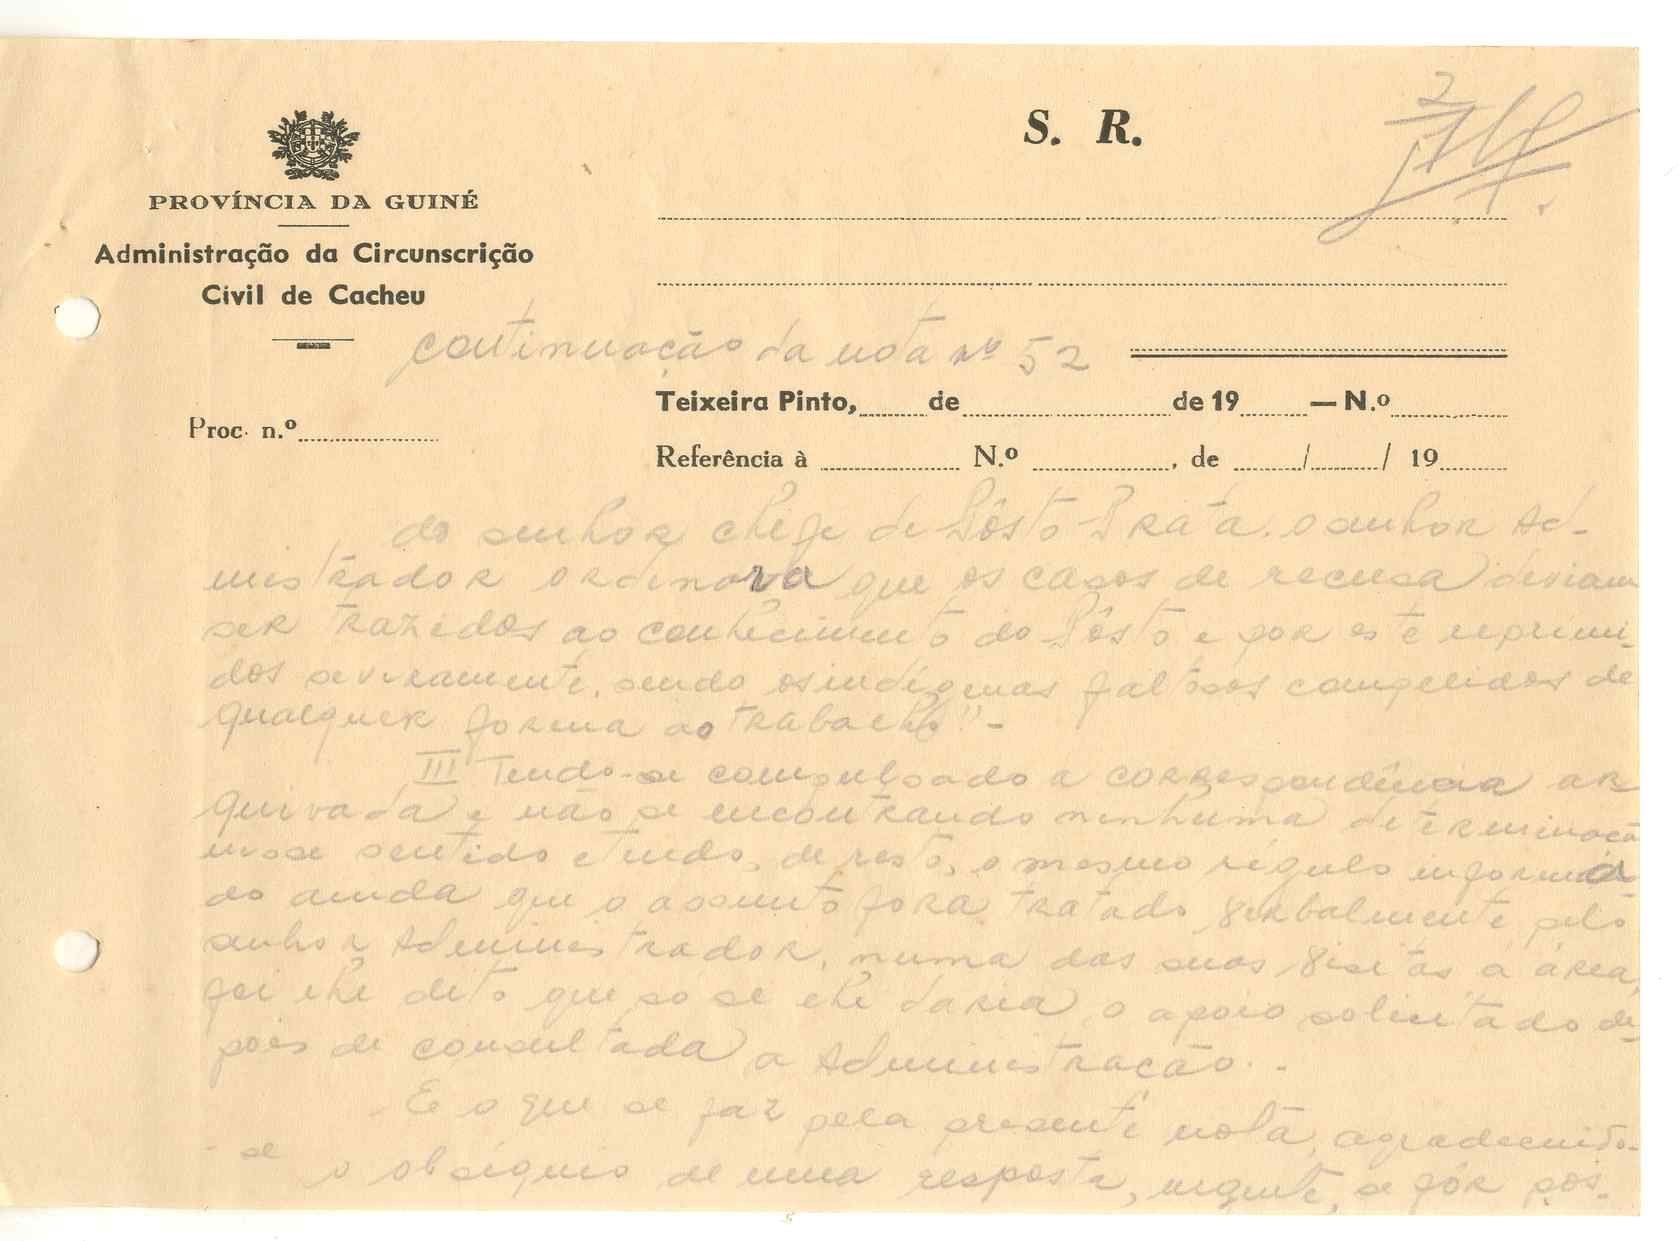 S. R.
PROVÍNCIA DA GUINÉ
Administração da Circunscrição
Civil de Cacheu
continuação da nota nº 52
Teixeira Pinto, de de 19 — N.º
Proc. n.º
Referência à N.º , de / / 19
do senhor chefe de Pôsto Prata, o senhor Ad-
ministrador ordenara que os casos de recusa deviam
ser trazidos ao conhecimento do Pôsto e por este reprimi-
dos severamente, sendo os indígenas faltosos compelidos de
qualquer forma ao trabalho" -
III Tendo-se compulsado a correspondência ar
quivada e não se encontrando ninhuma determinação
nesse sentido e tendo, de resto, o mesmo régulo informa
do ainda que o assunto fora tratado verbalmente pelo
senhor Administrador, numa das suas visitas á área,
foi lhe dito que so se lhe daria o apoio solicitado de
pois de consultada a Administração. -
- E o que se faz pela presente nota, agradecendo-
- se o obséquio de uma resposta, urgente, se fôr pos-